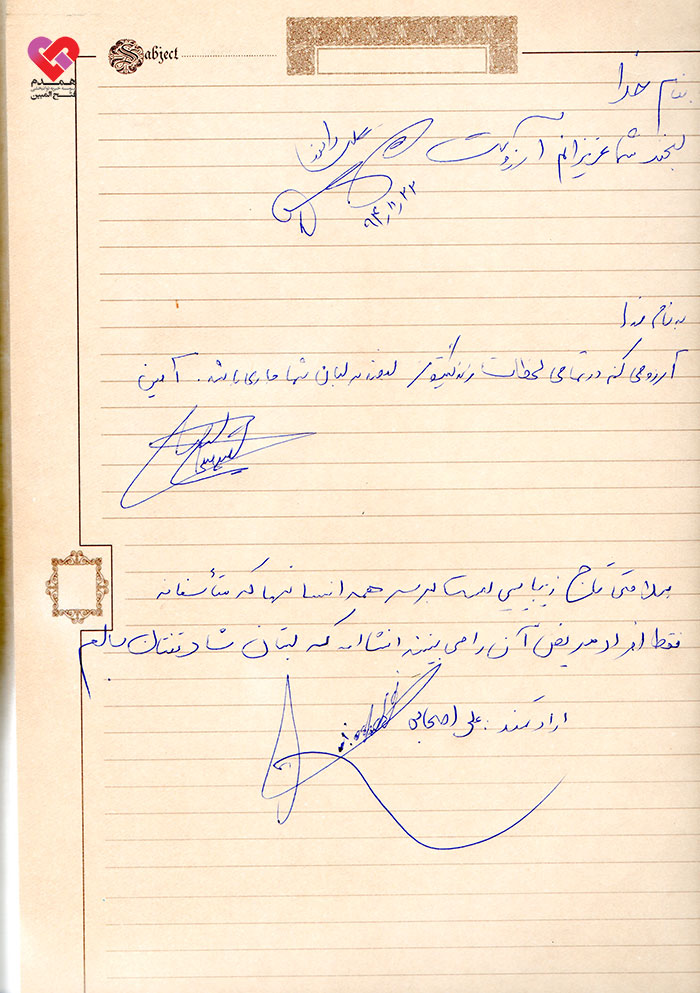 همدم
موسسه خیریه توانبخشی
فتح المبین
Sabject
بنام خدا
لبخند شما عزیزانم آرزویست
علی
۹۴/۱۱/۲۲
به نام خدا
آرزو می کنم در تمامی لحظات زندگیتون لبخند بر لبان شما جاری باشد. آمین
سلامتی تاج زیبایی است بر سر همه انسانها که متأسفانه
فقط افراد مریض آن را می بینند انشااله که لبتان شاد تنتان سالم
ارادتمند: علی اصحابی